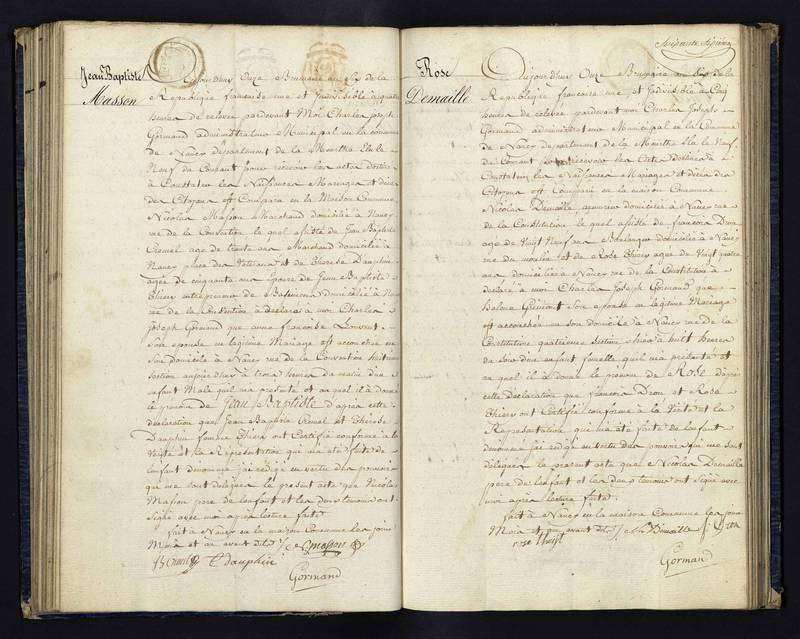 Jean Baptiste
Masson
Aujourd'huy Onze Brumaire an Six de la
Republique française une et Indivisible à quatre
heures de relevee pardevant Moi Charles joseph
Gormand administrateur Municipal en la commune
de Nancy departement de la Meurthe Elu le
Neuf du Courant pour recevoir les actes destinés
à Constater les Naissances Mariages et décès
des Citoyens est Comparu en la Maison Commune
Nicolas Masson Marchand domicilié à Nancy
rue de la Convention le quel assisté de Jean Baptiste
age de trente ans Marchand domicilié à
Nancy place des et de Therese Dauphin
agée de cinquante ans épouse de Jean Baptiste
Thiery entrepreneur de Batiments domiciliée à Nancy
rue de la Convention à declaré à moi Charles
Joseph Gormand que anne françoise
Son epouse en legitime Mariage est accouchée en
Son domicile à Nancy rue de la Convention huitieme
Section aujourd'huy à trois heures du matin d'un
enfant Male qu'il m'a presenté et au quel il à donné
le prenom de Jean Baptiste d'après cette
declaration que Jean Baptiste et Therese
Dauphin femme Thiery ont Certifié conforme à la
Verité et la Representation qui m'a été faite de
l'enfant denommé j'ai redigé en vertu des pouvoirs
qui me sont delegués le present acte que Nicolas
Masson pere de l'enfant et les deux temoins ont
Signé avec moi après lecture faite
fait à Nancy en la maison Commune les jour
Mois et an avant dits
Masson
dauphin
Gormand
Soixante Septième
Rose
Demaille
Aujourd'huy Onze Brumaire an Six de la
Republique francoise une et Indivisible à Cinq
heures de relevee pardevant moi Charles Joseph
Gormand administrateur Municipal en la Commune
de Nancy departement de la Meurthe Elu le Neuf
du Courant pour recevoir les Actes destinés à
Constater les Naissances Mariages et décès des
Citoyens est Comparu en la maison Commune
Nicolas Demaille domicilié à Nancy rue
de la Constitution le quel assisté de francois Dron
age de Vingt Neuf ans Boulanger domicilié à Nancy
rue du moulin et de Rose Thiery agee de Vingt quatre
ans domiciliée à Nancy rue de la Constitution à
declaré à moi Charles Joseph Gormand que
Son epouse en legitime Mariage
est accouchée en Son domicile à Nancy rue de la
Constitution quatrieme Section hier à huit heures
du Soir d'un enfant femelle qu'il m'a presenté et
au quel il à donné le prenom de Rose d'après
cette Declaration que francois Dron et Rose
Thiery ont Certifié conforme à la Verité et la
Representation qui m'a été faite de l'enfant
denommé j'ai redigé en vertu des pouvoirs qui me sont
delegués le present acte que Nicolas Demaille
pere de l'enfant et les deux temoins ont Signé avec
moi après lecture faite
fait à Nancy en la maison Commune les jour
Mois et an avant dits Demaille Dron
rose
Gormand